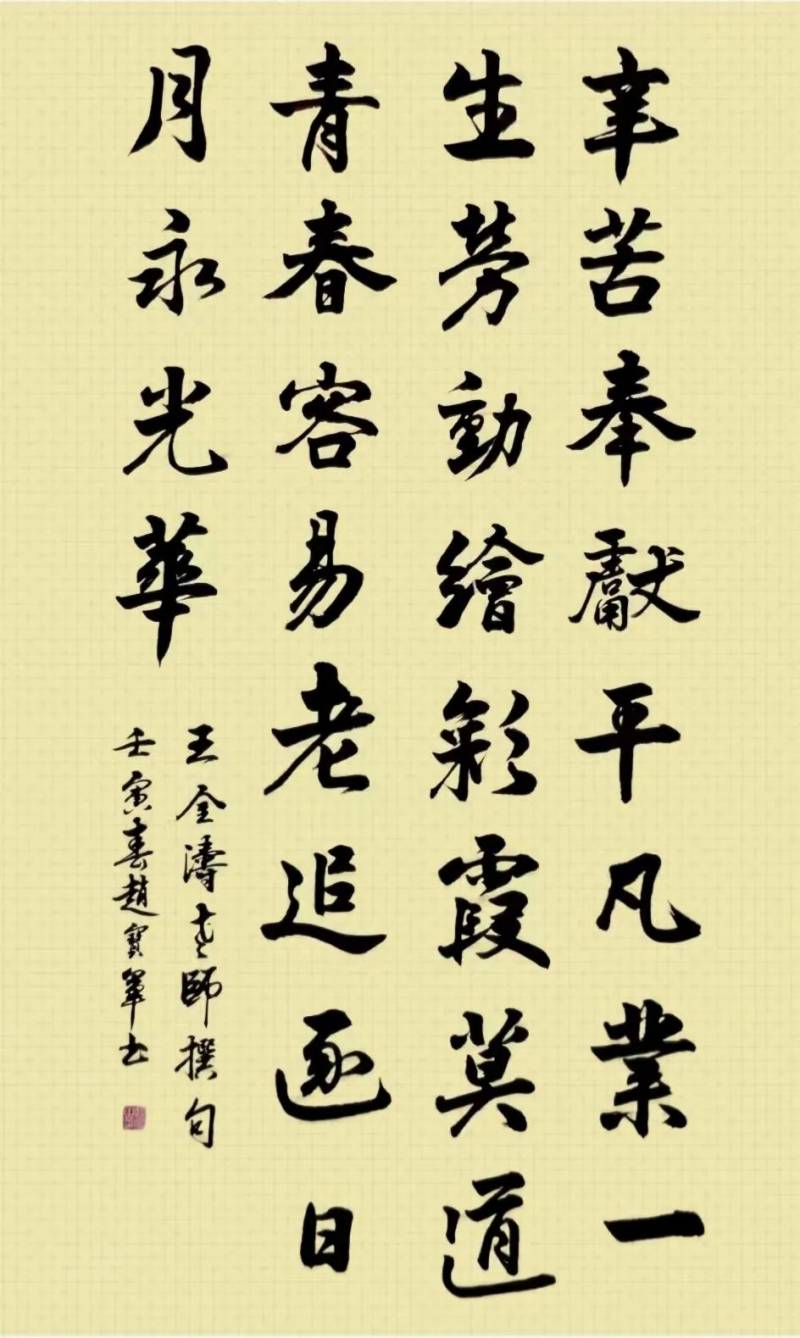 辛苦奉獻平凡業一
生勞動繪彩霞莫道
青春容易老追逐日
月永光華
王全濤老師撰句
壬寅春趙寶單书